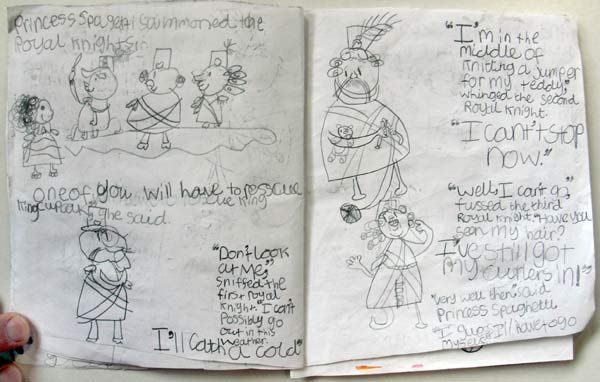 Princess Spagetti summoned the
Royal Knights
one of you will have to resscue
King Cupcake" she said.
"Don't look
at me,"
sniffed the
first royal
Knight. "I can't
possibly go
out in this
weather.
I'll catch a cold"
"I'm in the
middle of
Knitting a jumper
for my teddy,"
whinged the second
Royal Knight.
"I can't stop
now."
"well, I can't go,"
fussed the third
Royal Knight. "Have you
seen my hair?
I've still got
my curlers in!"
"very well then," said
Princess Spaghetti
"I guess I'll have to go
myself."